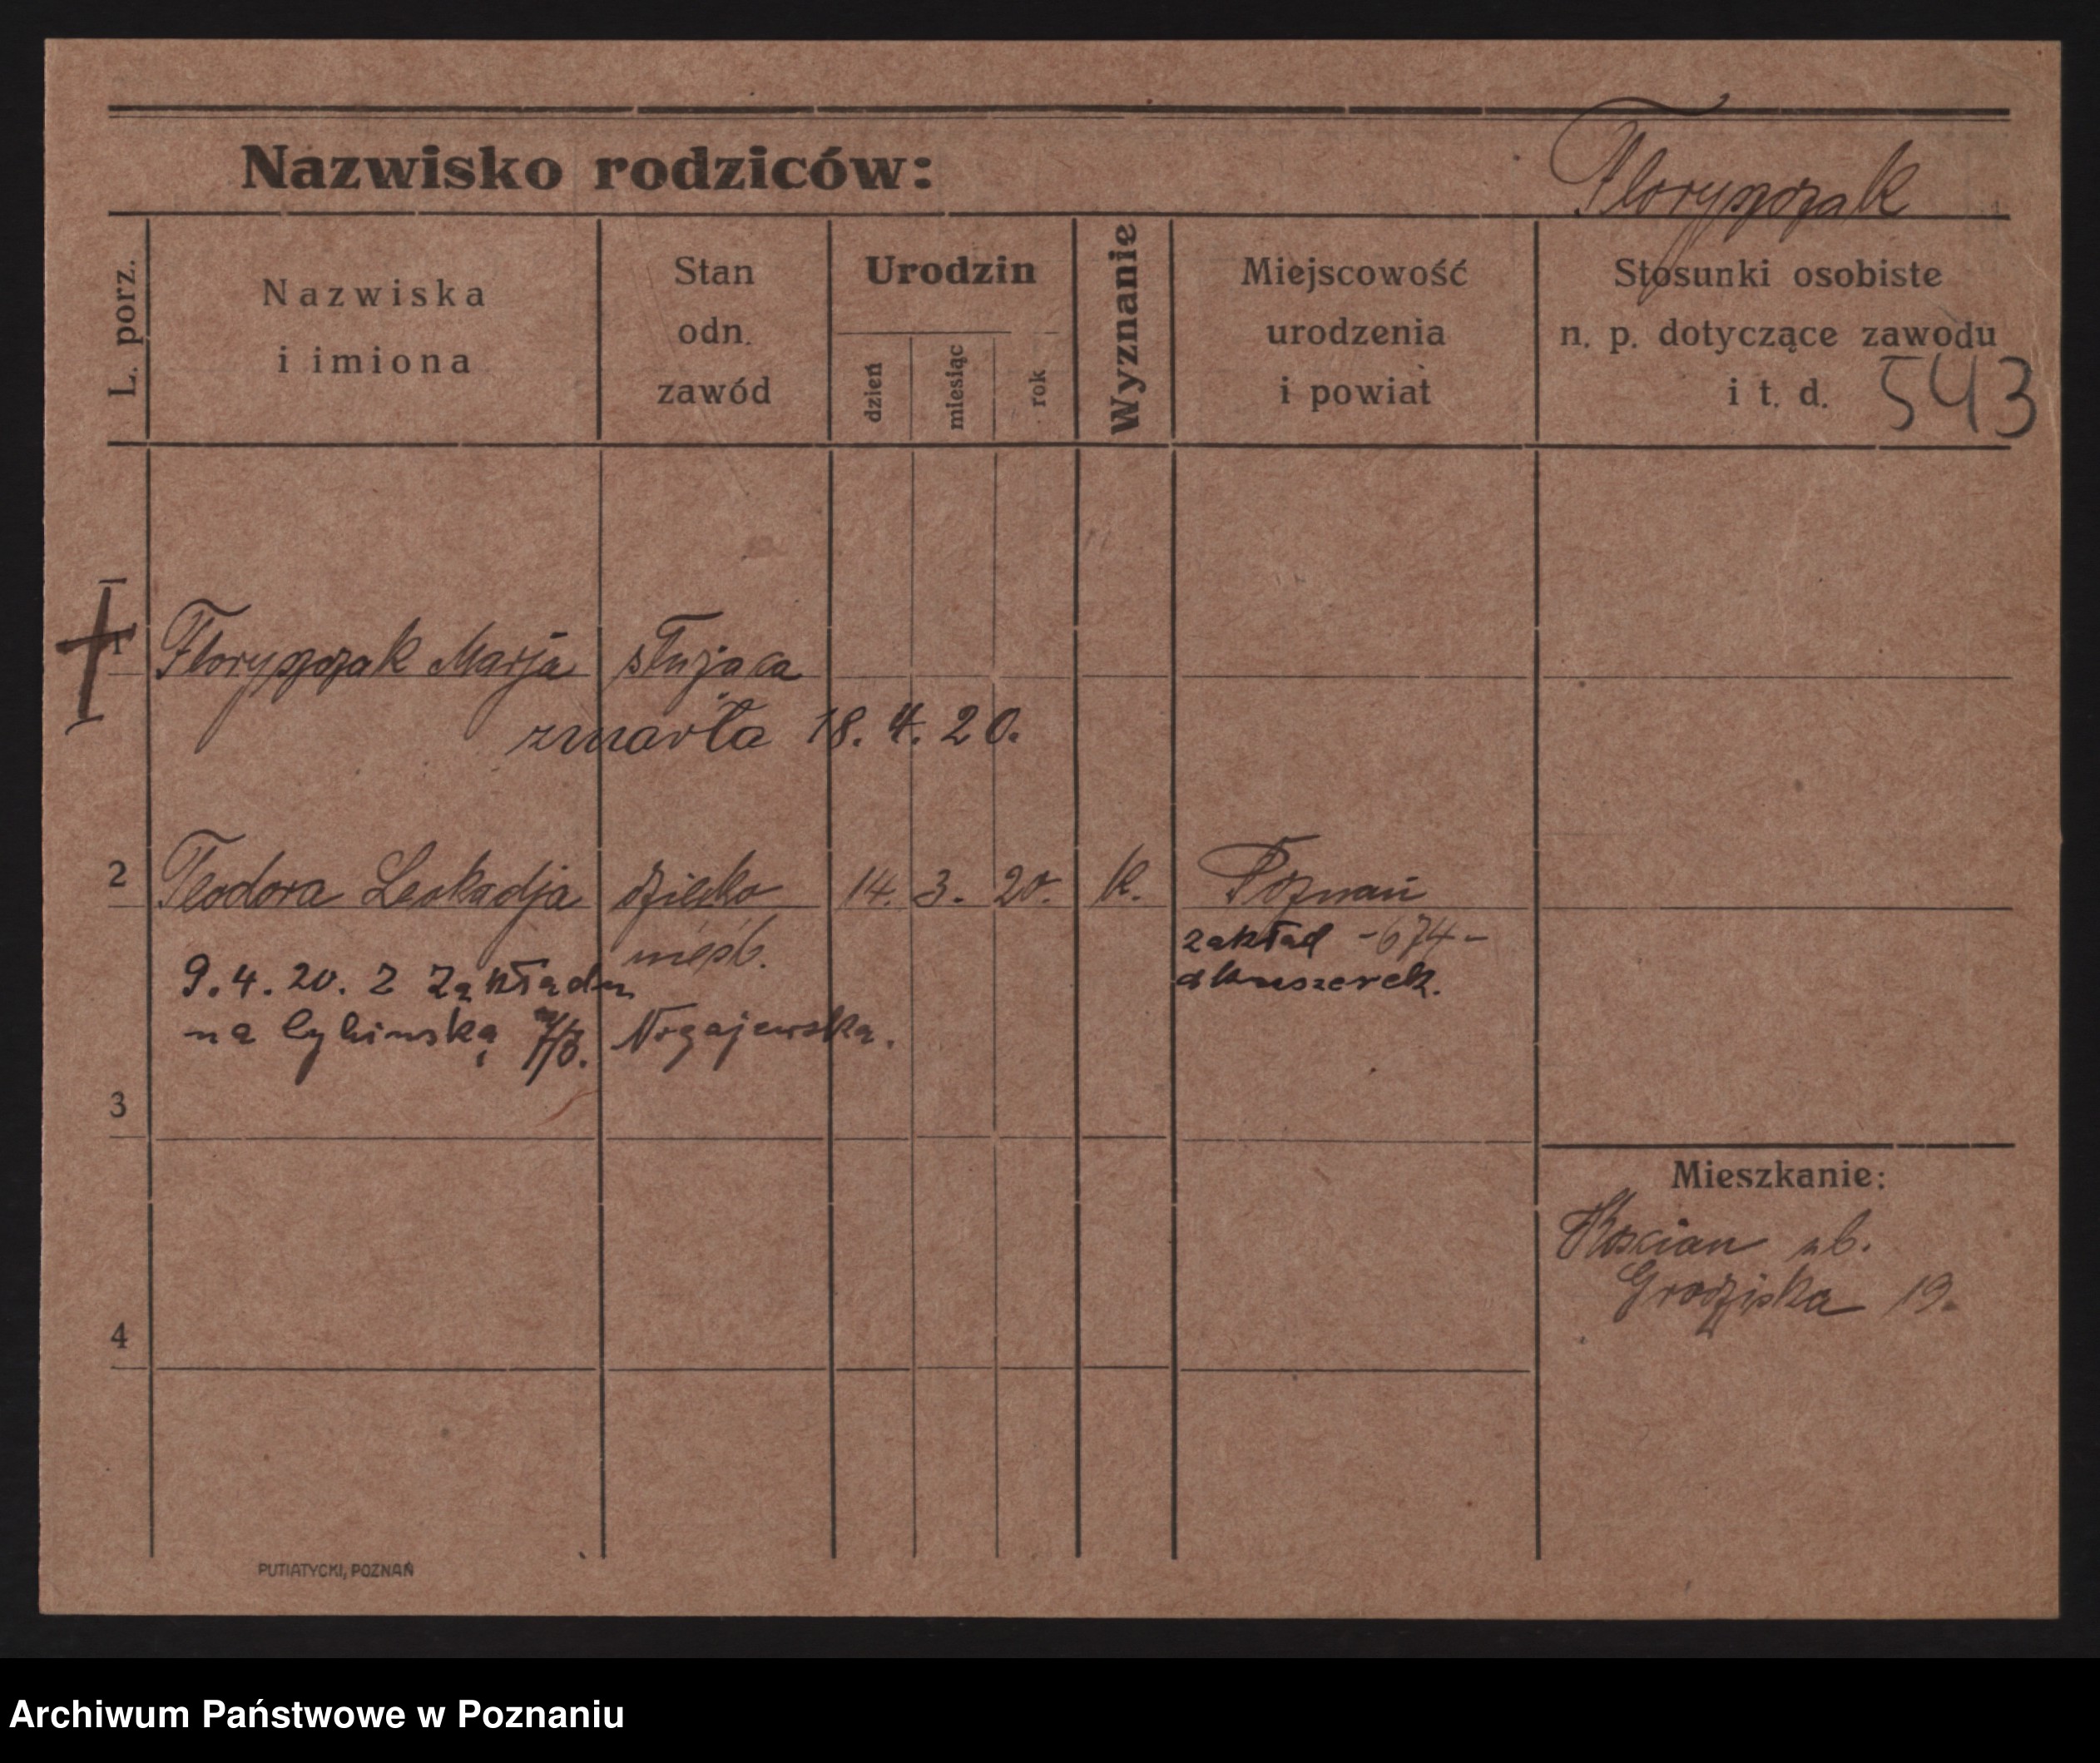 Nazwisko rodziców: Floryszczak
L. porz.
Nazwiska
i imiona
Stan
odn.
zawód
Urodzin
dzień
miesiąc
rok
Wyznanie
Miejscowość
urodzenia
i powiat
Stosunki osobiste
n. p. dotyczące zawodu
i t. d. 543
1 Floryszczak Marja służąca
zmarła 18. 4. 20.
2 Teodora Leokadja dziecko 14. 3. 20. k. Poznań
nieśl. zakład -674-
akuszerek.
9.4.20. z zakładu
na Cybińską 7/8.
3
Mieszkanie:
Kościan ul.
Grodziska 19.
4
PUTIATYCKI, POZNAŃ
Archiwum Państwowe w Poznaniu